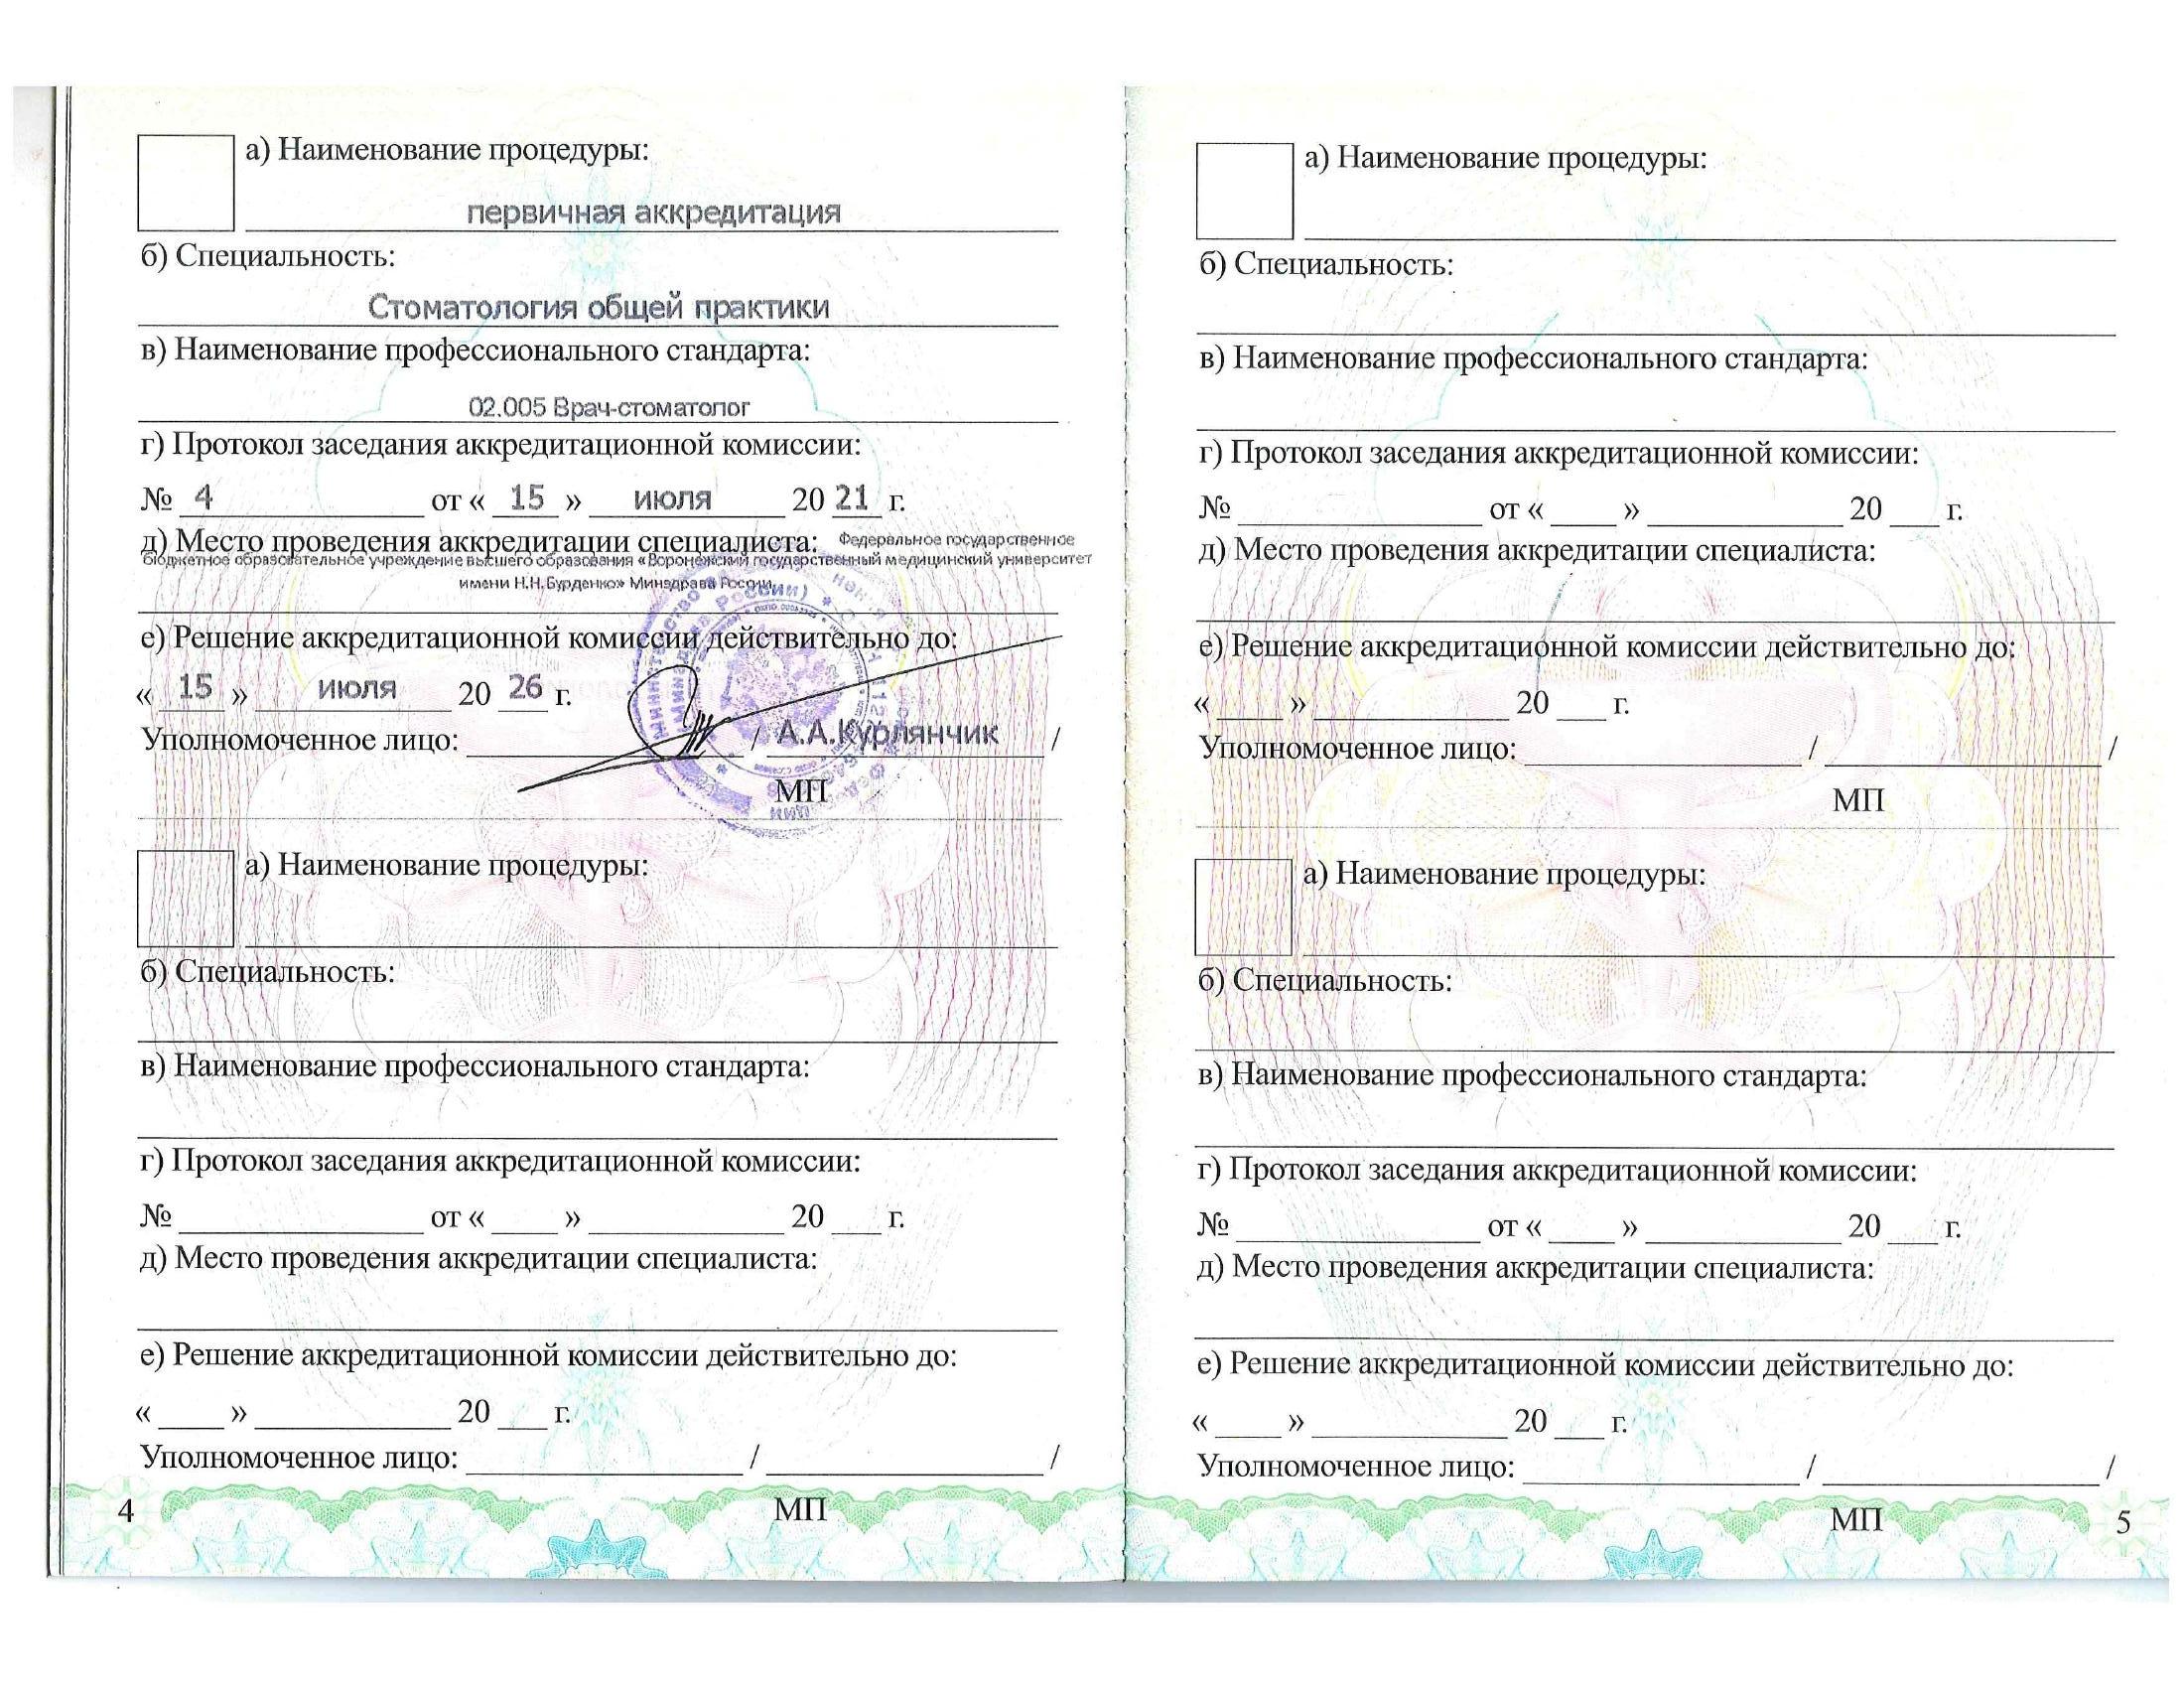 а) Наименование процедуры:
первичная аккредитация
б) Специальность:
Стоматология общей практики
в) Наименование профессионального стандарта:
02.005 Врач-стоматолог
г) Протокол заседания аккредитационной комиссии:
№ 4 от « 15 » июля 20 21 г.
д) Место проведения аккредитации специалиста: Федеральное государственное
бюджетное образовательное учреждение высшего образования «Воронежский государственный медицинский университет
имени Н.Н.Бурденко» Минздрава России
е) Решение аккредитационной комиссии действительно до:
« 15 » июля 20 26 г.
Уполномоченное лицо: / А.А.Курлянчик /
МП
а) Наименование процедуры:
б) Специальность:
в) Наименование профессионального стандарта:
г) Протокол заседания аккредитационной комиссии:
№ от « » 20 г.
д) Место проведения аккредитации специалиста:
е) Решение аккредитационной комиссии действительно до:
« » 20 г.
Уполномоченное лицо: / /
МП
4
а) Наименование процедуры:
б) Специальность:
в) Наименование профессионального стандарта:
г) Протокол заседания аккредитационной комиссии:
№ от « » 20 г.
д) Место проведения аккредитации специалиста:
е) Решение аккредитационной комиссии действительно до:
« » 20 г.
Уполномоченное лицо: / /
МП
а) Наименование процедуры:
б) Специальность:
в) Наименование профессионального стандарта:
г) Протокол заседания аккредитационной комиссии:
№ от « » 20 г.
д) Место проведения аккредитации специалиста:
е) Решение аккредитационной комиссии действительно до:
« » 20 г.
Уполномоченное лицо: / /
МП
5